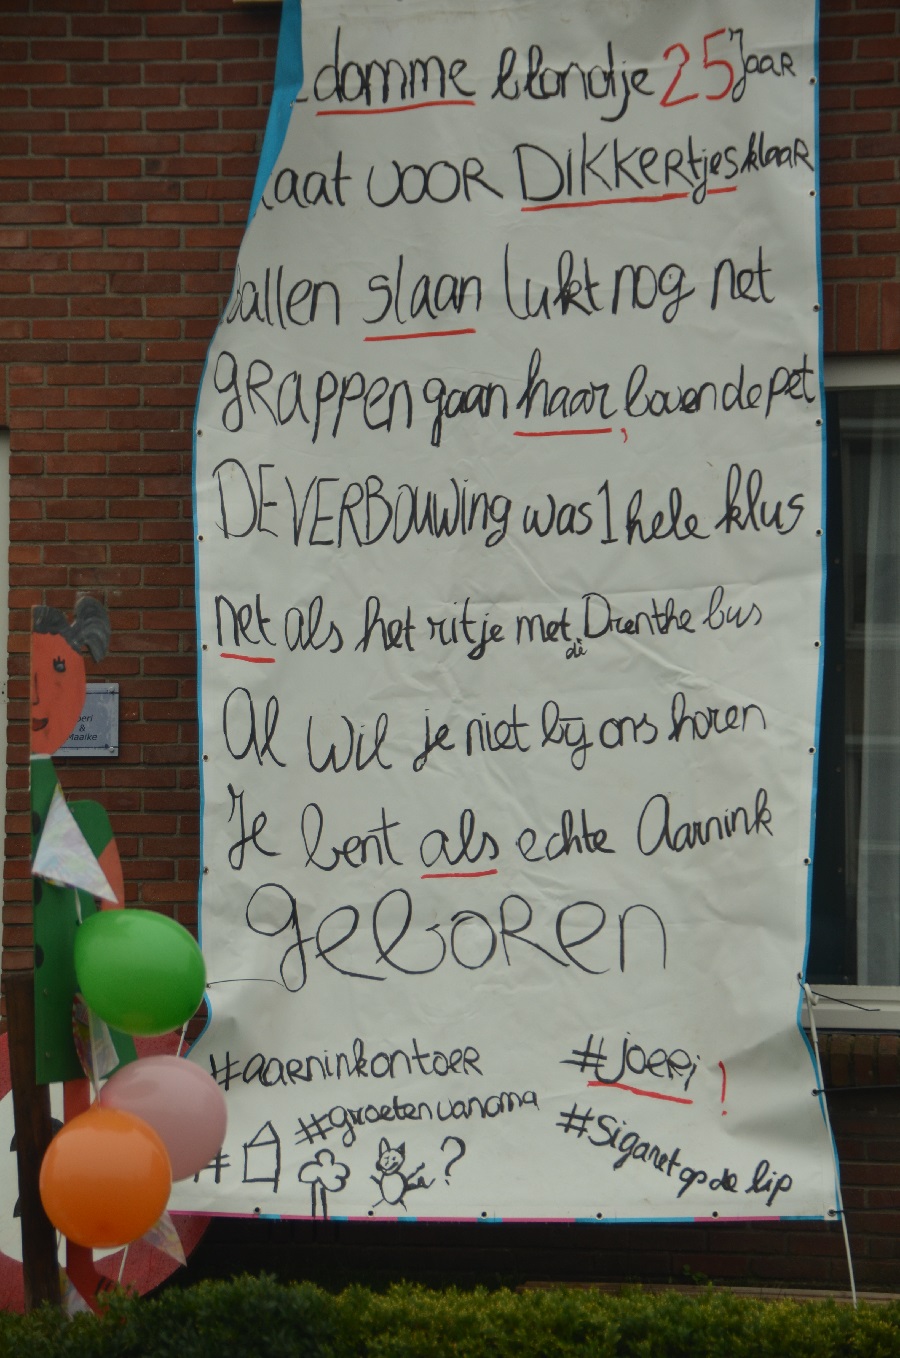 domme blondje 25 Jaar
voor DIKKertjes klaar
ballen slaan lukt nog net
grappen gaan haar, boven de pet
DE VERBOUWing was 1 hele klus
net als het ritje met die Drenthe bus
Al wil je niet bij ons horen
Je bent als echte Aarnink
geboren
#aarninkontoer #joeri!
#groetenvanoma
#sigaret op de lip
# ?
&
Maaike